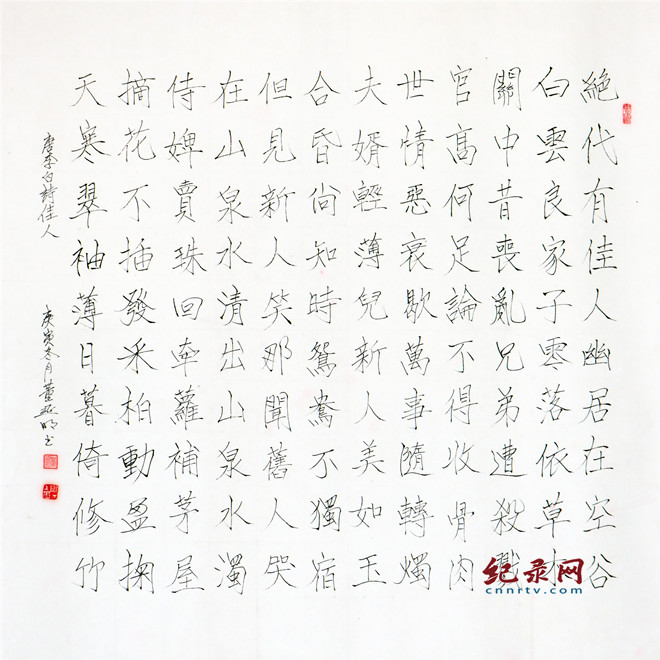 絕代有佳人幽居在空谷
白雲良家子零落依草木
關中昔喪亂兄弟遭殺戮
官高何足論不得收骨肉
世情惡衰歇萬事隨轉燭
夫婿輕薄兒新人美如玉
合昏尚知時鴛鴦不獨宿
但見新人笑那聞舊人哭
在山泉水清出山泉水濁
侍婢賣珠回牽蘿補茅屋
摘花不插發采柏動盈掬
天寒翠袖薄日暮倚修竹
唐李白詩佳人
庚寅冬月
纪录网
cnnrtv.com